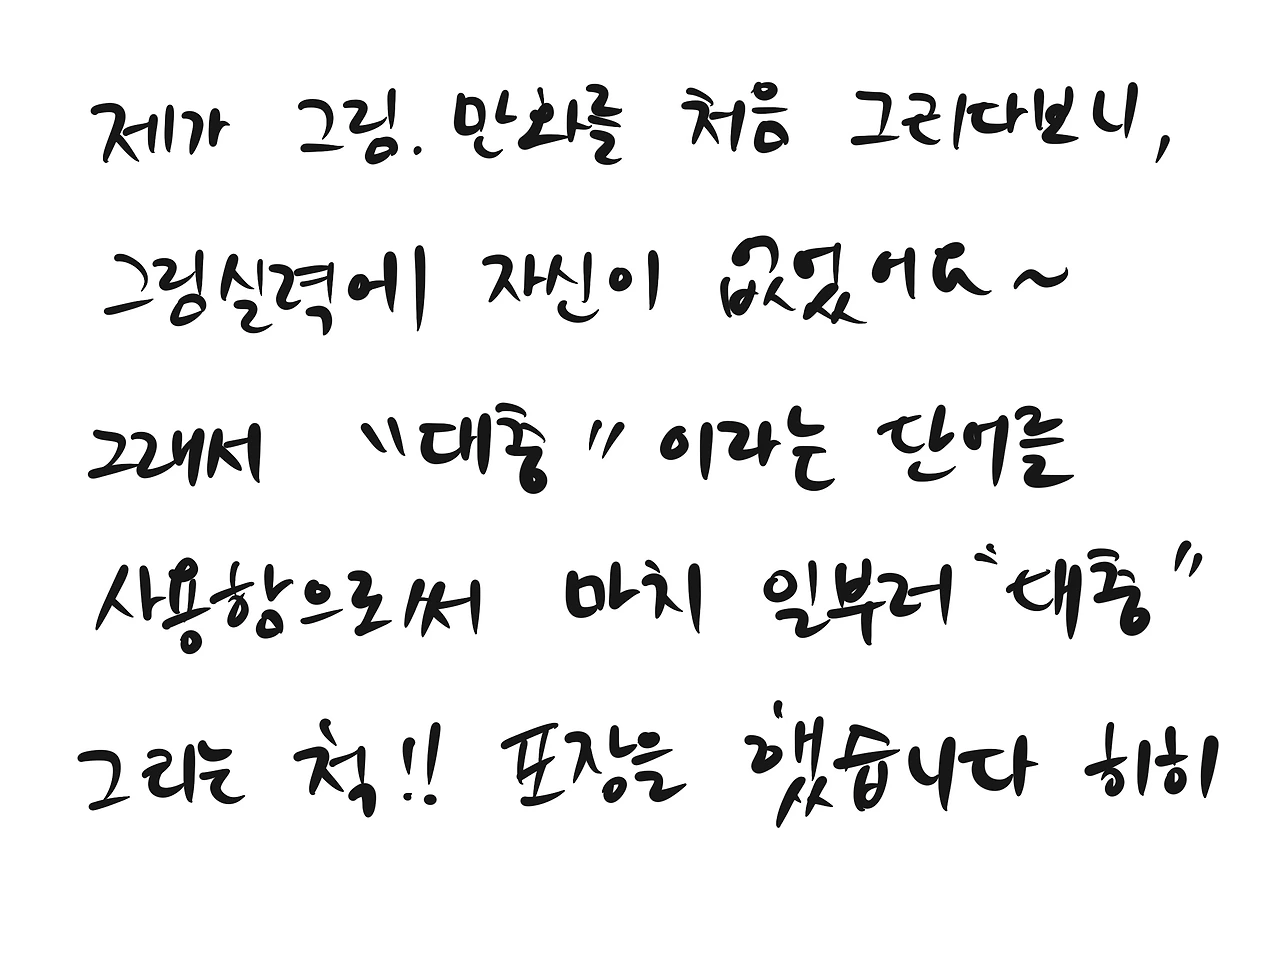 제가 그림.만화를 처음 그리다보니,
그림실력에 자신이 없었어요~
그래서 "대충" 이라는 단어를
사용함으로써 마치 일부러 "대충"
그리는 척!! 포장을 했습니다 히히